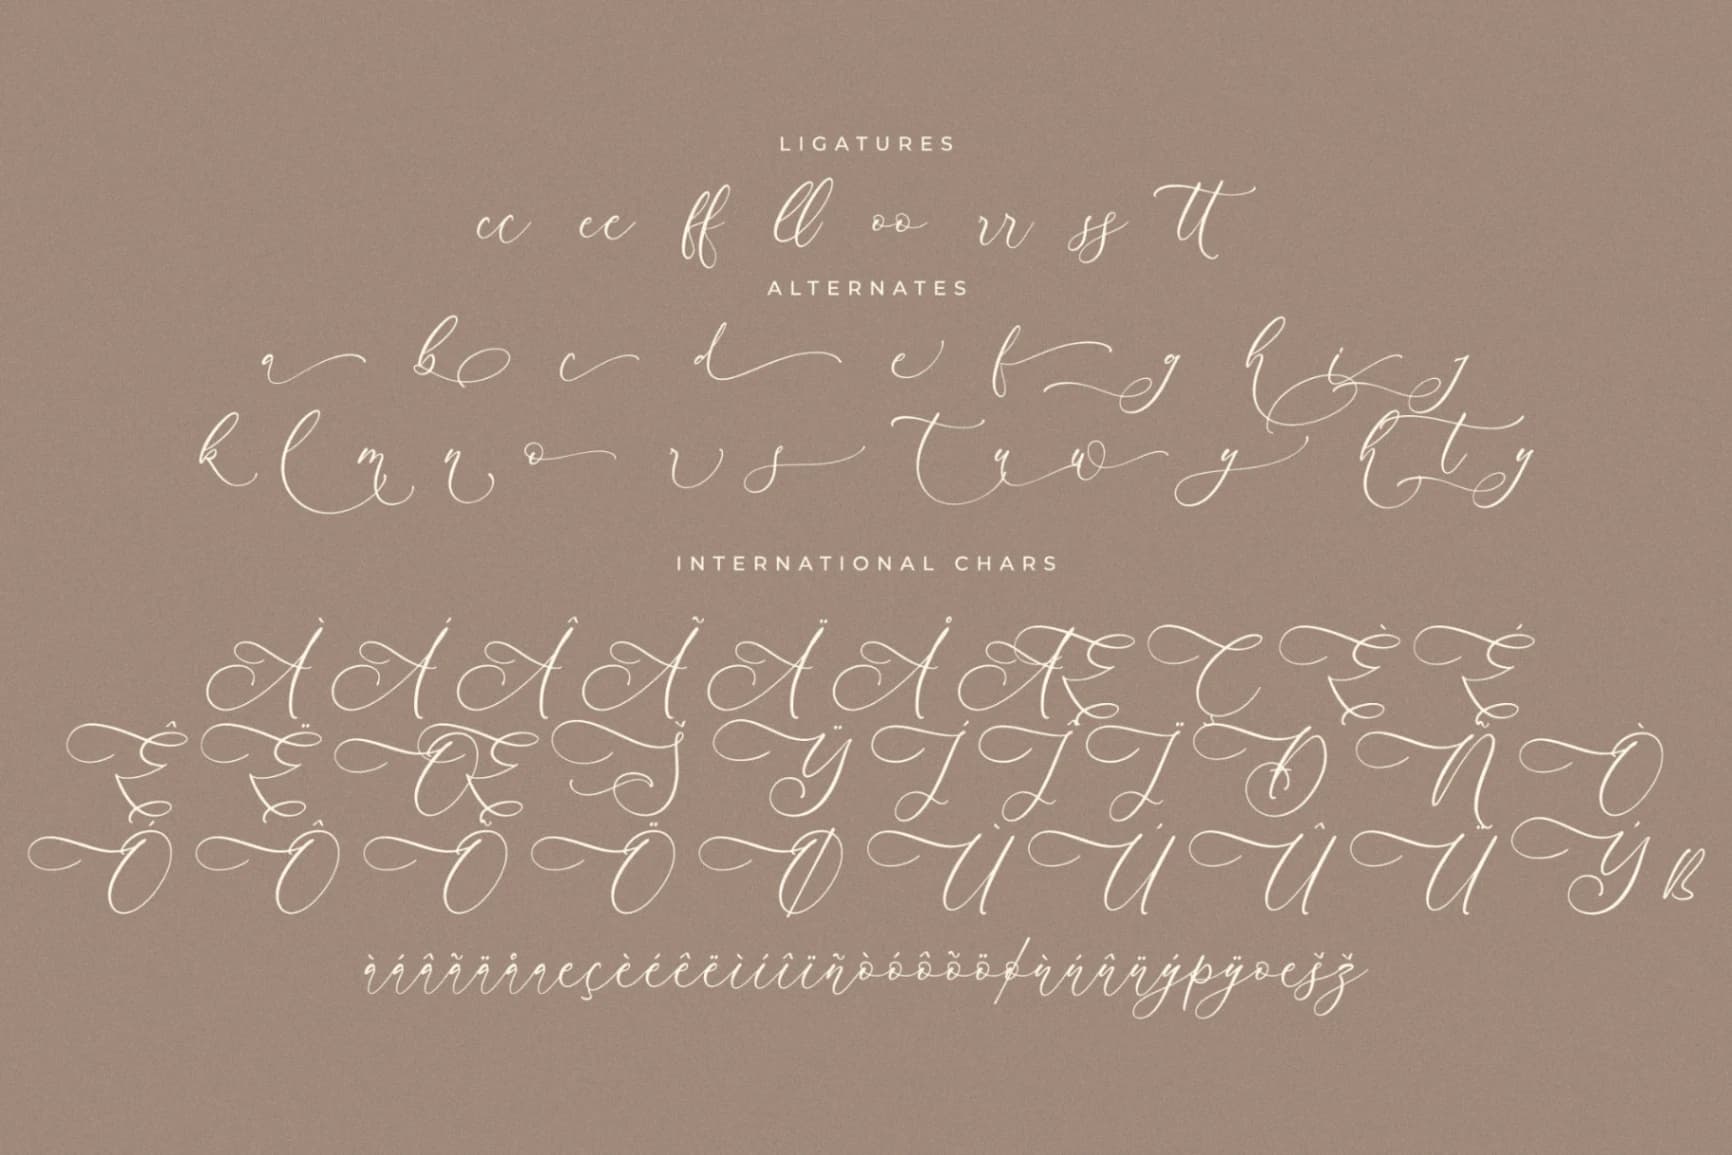 LIGATURES
cc ee ff ll oo rr ss tt
ALTERNATES
a b c d e f g h i j
k l m n o r s t u w y h t y
INTERNATIONAL CHARS
À Á Â Ã Ä Å Æ Ç È É
Ê Ë Œ Š Ÿ Í Î Ï Ð Ñ Ò
Ó Ô Õ Ö Ø Ù Ú Û Ü Ý ß
àáâãäåæçèéêëìíîïñòóôõöøùúûüýþÿœšž